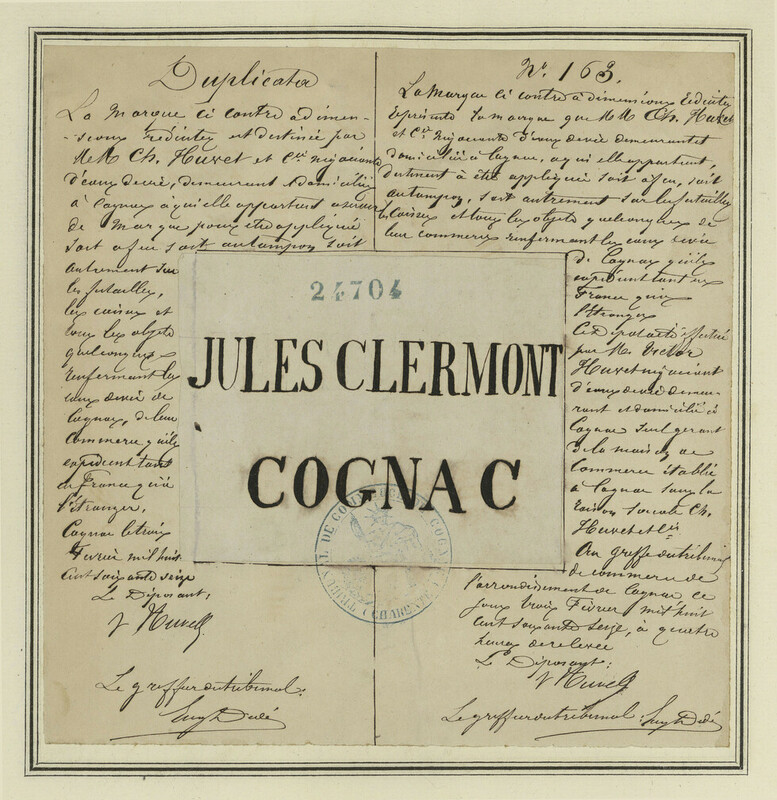 Duplicata
La marque ci contre a dimen-
-sions réduites est destinée par
M.M. Ch. Huvet et Cie négociants
d'eaux de vie, demeurant & domiciliés
à Cognac à qui elle appartient a servir
de marque pour être appliquée
soit à feu soit au tampon soit
autrement sur
les futailles,
les caisses et
tous les objets
quelconques
renfermant les
eaux de vie de
Cognac, de leur
Commerce qu'ils
expédient tant
en France qu'à
l'étranger.
Cognac le trois
Février mil huit
cent soixante seize
Le Déposant,
V Huvet
Le greffier du tribunal:
N°. 163.
La marque ci contre à dimensions réduites
représente la marque que MM Ch. Huvet
et Cie négociants d'eaux de vie demeurant et
domiciliés à Cognac, à qui elle appartient,
destinent à être appliquée soit à feu, soit
au tampon, soit autrement sur les futailles
les Caisses et tous les objets quelconques de
leur commerce renfermant les eaux de vie
de Cognac qu'ils
expédient tant en
France qu'à
l'étranger
Ce Dépôt a été effectué
par M. Victor
Huvet négociant
d'eaux de vie demeu-
rant et domicilié à
Cognac seul gérant
de la maison de
Commerce établie
à Cognac sous la
raison sociale Ch.
Huvet et Cie
Au greffe du tribunal
de commerce de
l'arrondissement de Cognac ce
jour trois Février mil huit
cent soixante seize, à quatre
heures de relevée
Le Déposant:
V Huvet
Le greffier du tribunal:
24704
JULES CLERMONT
COGNAC
TRIBUNAL DE COMMERCE DE COGNAC (CHARENTE)